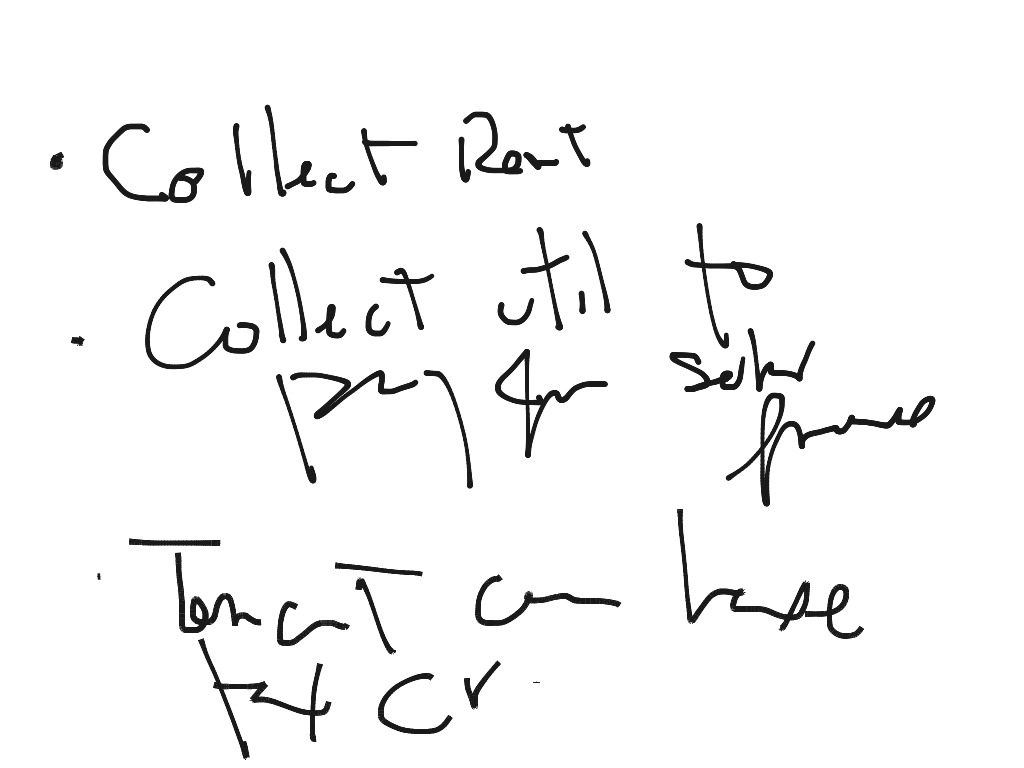 • Collect Rent
• Collect util to
pay for solar
• Tenant can have